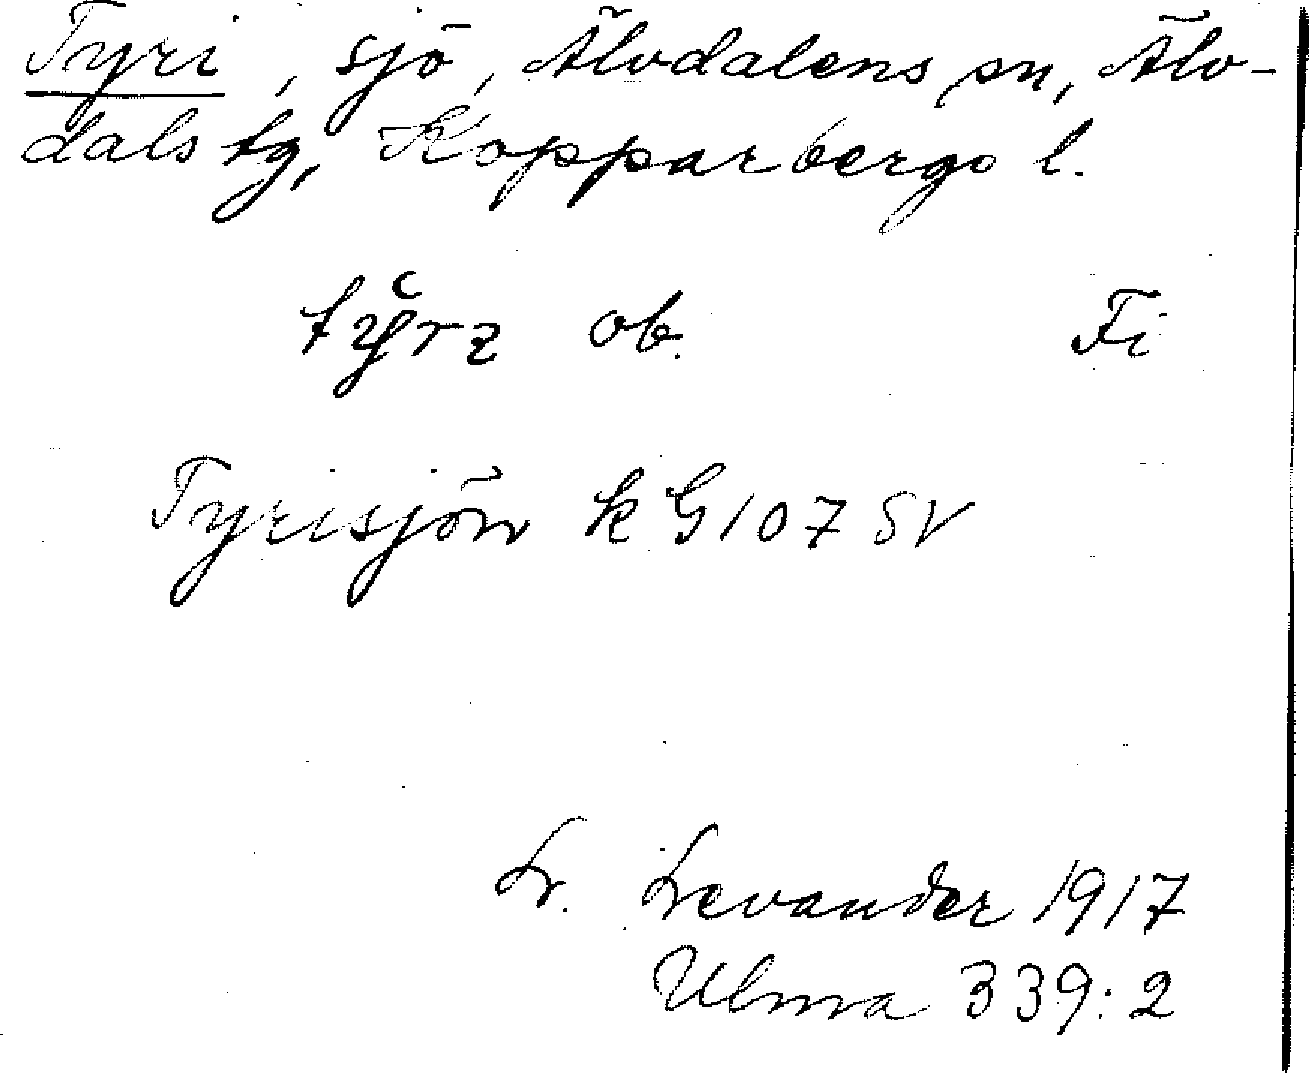 Tyri, sjö, Älvdalens sn, Älv-
dals tg, Kopparbergs l.
ob. Fi
Tyrisjön k G107 SV
L. Levander 1917
Ulma 339:2